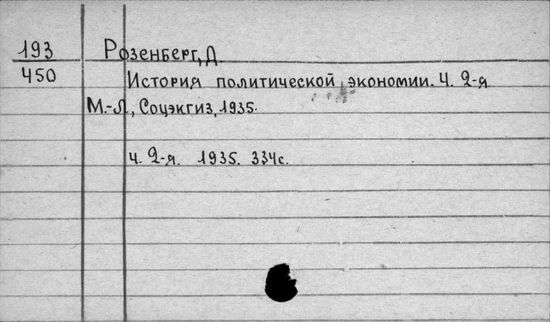 193 Розенберг, Д.
450 История политической экономии. Ч. 2-я
М.-Л., Соцэкгиз, 1935.
ч. 2-я. 1935. 334с.